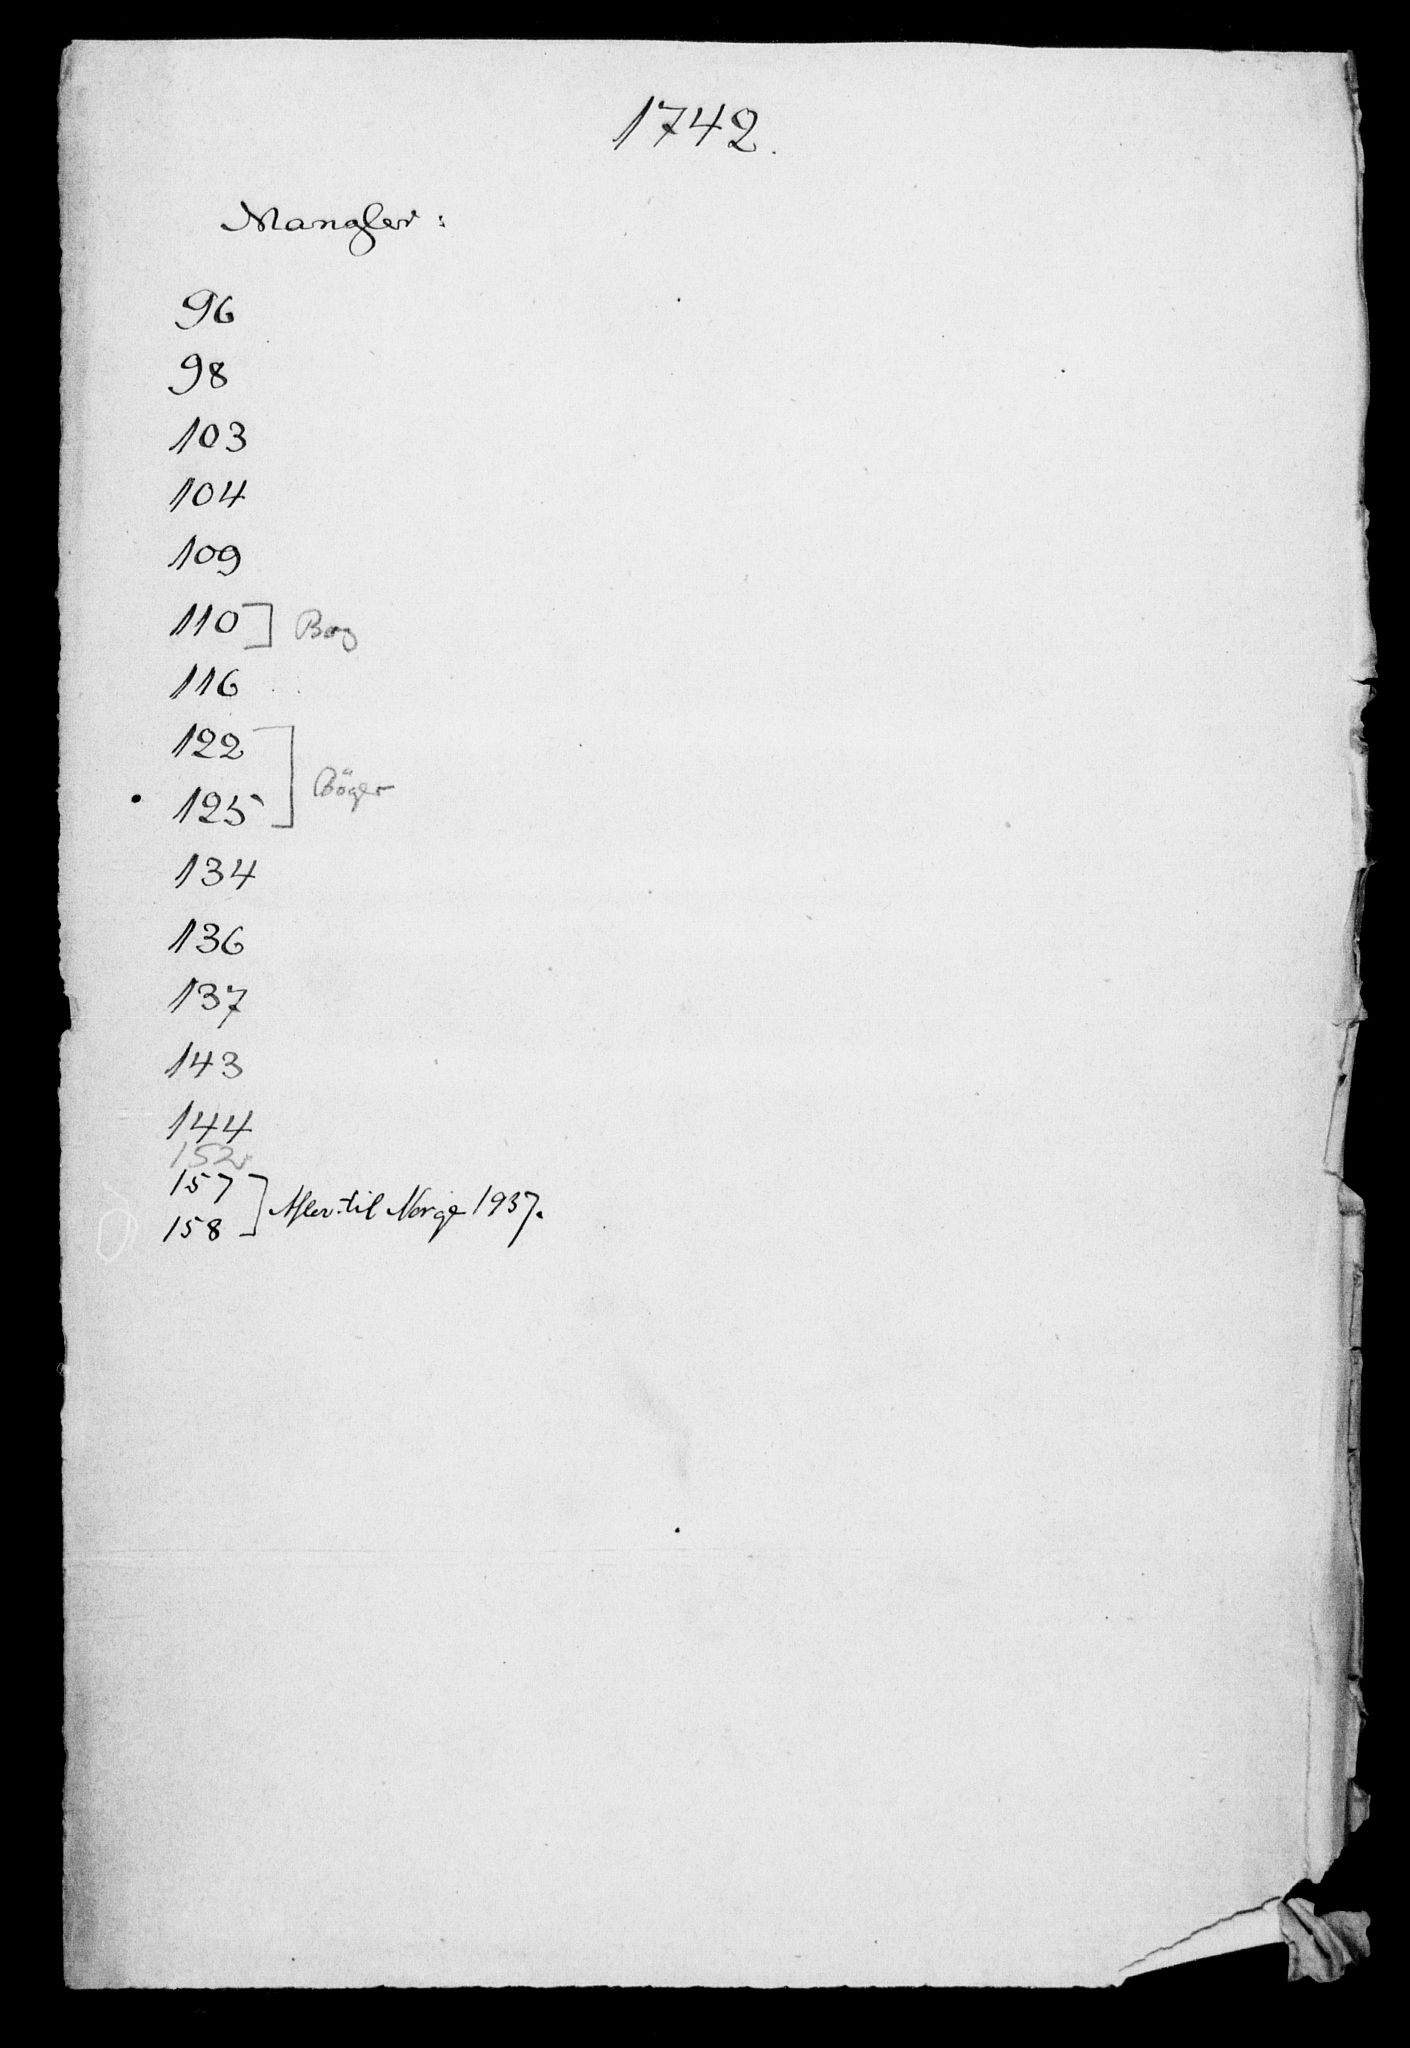 1742.
Mangler:
96
98
103
104
109
110] Bog
116
122
125] Böger
134
136
137
143
144
152
157
158] Aflev. til Norge 1937.